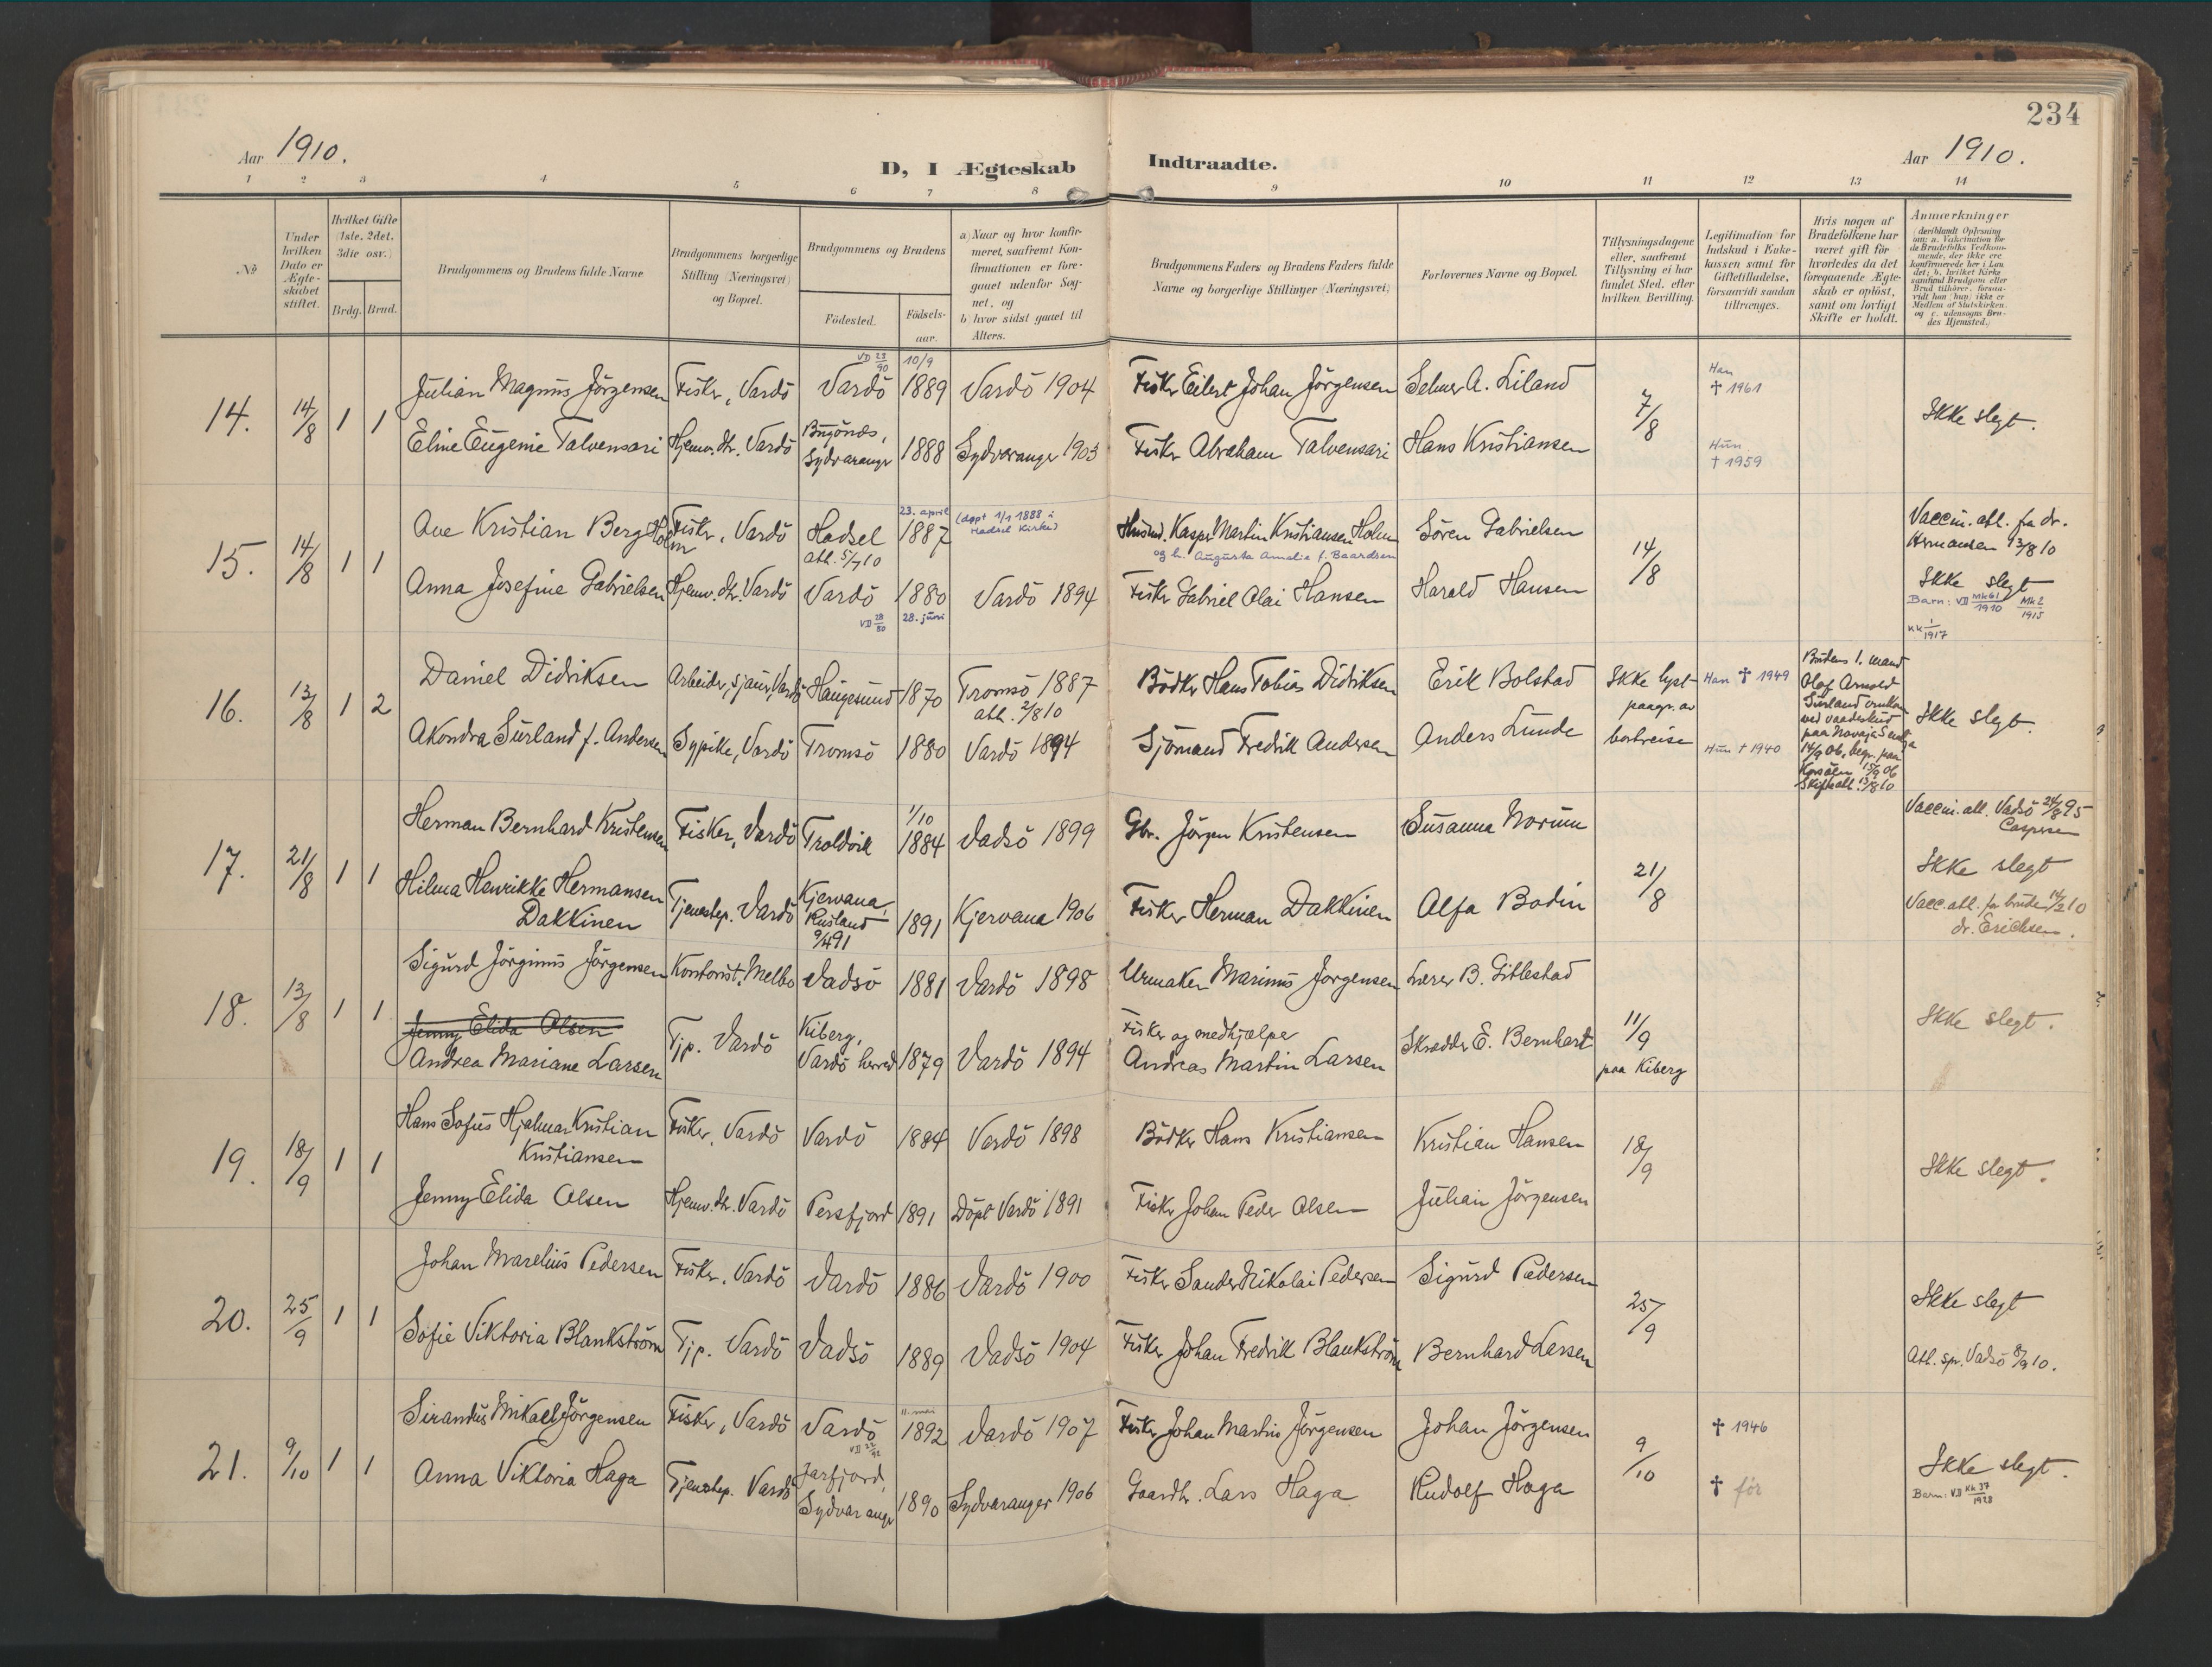 234
Aar 1910.
D, I Ægteskab Indtraadte.
Aar 1910.
1 2 3 4 5 6 7 8 9 10 11 12 13 14
No
Under hvilken Dato er Ægte-skabet stiftet.
Hvilket Gifte (1ste, 2det, 3die osv.)
Brdg. Brud.
Brudgommens og Brudens fulde Navne
Brudgommens borgerlige Stilling (Næringsvei) og Bopæl.
Brudgommens og Brudens
Födested.
Födsels-aar.
a) Naar og hvor konfir-meret, saafremt Kon-firmationen er fore-gaaet udenfor Sog-net, og
b) hvor sidst gaaet til Alters.
Brudgommens Faders og Brudens Faders fulde Navne og borgerlige Stillinger (Næringsvei)
Forlovernes Navne og Bopæl.
Tillysningsdagene eller, saafremt Tillysning ei har fundet Sted, efter hvilken Bevilling.
Legitimation for Indskud i Enke-kassen samt for Giftetilladelse, forsaavidt saadan tiltrænges.
Hvis nogen af Brudefolkene har været gift för hvorledes da det foregaaende Ægte-skab er oplöst, samt om lovligt Skifte er holdt.
Anmærkninger (deriblandt Oplysning om: a. Vakcination for de Brudefolks Vedkom-mende, der ikke ere konfirmerede her i Lan det; b. hvilket Kirke samfund Brudgom eller Brud tilhörer, forsaa-vidt han (hun) ikke er Medlem af Statskirken, og c. udensogns Bru-des Hjemsted.)
14. 14/8 1 1
Julian Magnus Jörgensen Fisker, Vardö Vardö 10/9 1889 Vardö 1904 Fisker Eilert Johan Jörgensen Selmer A. Liland 7/8 Han † 1961 Ikke slegt.
Eline Eugenie Talvensari Hjemv. dtr. Vardö Bugönæs, Sydvaranger 1888 Sydvaranger 1903 Fisker Abraham Talvensari Hans Kristiansen Hun † 1959
15. 14/8 1 1
Ave Kristian Berg Holm Fisker, Vardö Hadsel att. 5/7 10 23. april 1887 (døpt 1/1 1888 i Hadsel Kirke) Husmd. Kasper Martin Kristiansen Holm og h. Augusta Amalie f. Baardsen Sören Gabrielsen 14/8 Vaccin. att. fra dr. Hermansen 13/8 10
Anna Josefine Gabrielsen Hjemv. dtr. Vardö Vardö 1880 28. juni Vardö 1894 Fisker Gabriel Olai Hansen Harald Hansen Ikke slegt
Barn: VD Mk 61/1910 Mk 2/1915
KK 1/1917
16. 13/8 1 2
Daniel Didriksen Arbeider, sjauer, Vardö Haugesund 1870 Tromsö 1887 att. 2/8 10 Bödker Hans Tobias Didriksen Erik Bolstad Ikke lyst paagr. av bortreise Han † 1949
Akondra Surland f. Andersen Sypike, Vardö Tromsö 1880 Vardö 1894 Sjömand Fredrik Andersen Anders Lunde Hun † 1940
Brudens 1. mand Olaf Arnold Surland omkom ved vaadeskud paa Novaja Semlja 14/9 06, begr. paa 15/9 06 Skifteatt. 13/8 10
Ikke slegt.
17. 21/8 1 1
Herman Bernhard Kristensen Fisker, Vardö Troldvik 1/10 1884 Vadsö 1899 Gbr. Jörgen Kristensen Susanna Norum 21/8 Vaccin. att. Vadsö 24/8 95 Caspersen
Hilma Henrikke Hermansen Dakkinen Tjenestep. Vardö Kjervana, Rusland 9/4 91 1891 Kjervana 1906 Fisker Herman Dakkinen Alfa Bodin Ikke slegt
Vacc. att. for bruden 14/2 10 dr. Erichsen.
18. 13/8 1 1
Sigurd Jörginus Jörgensen Kontorist, Melbo Vadsö 1881 Vardö 1898 Urmaker Marinus Jörgensen Lærer B. Gitlestad Ikke slegt.
Jenny Elida Olsen
Andrea Mariane Larsen Tjp. Vardö Kiberg, Vardö herred 1879 Vardö 1894 Fisker og medhjælper Andreas Martin Larsen Skrædder E. Bernhart 11/9 paa Kiberg
19. 18/9 1 1
Hans Sofus Hjalmar Kristian Kristiansen Fisker, Vardö Vardö 1884 Vardö 1898 Bödker Hans Kristiansen Kristian Hansen 18/9 Ikke slegt.
Jenny Elida Olsen Hjemv. dtr. Vardö Persfjord 1891 Döpt Vardö 1891 Fisker Johan Peder Olsen Julian Jörgensen
20. 25/9 1 1
Johan Marelius Pedersen Fisker, Vardö Vardö 1886 Vardö 1900 Fisker Sander Nikolai Pedersen Sigurd Pedersen 25/9 Ikke slegt
Sofie Viktoria Blankström Tjp. Vardö Vadsö 1889 Vadsö 1904 Fisker Johan Fredrik Blankström Bernhard Larsen Att. spr. Vadsö 8/9 10.
21. 9/10 1 1
Sirandus Mikael Jörgensen Fisker, Vardö Vardö 11. mai 1892 Vardö 1907 Fisker Johan Martin Jörgensen Johan Jörgensen 9/10 † 1946 Ikke slegt.
Anna Viktoria Haga Tjenestep. Vardö Jarfjord, Sydvaranger 1890 Sydvaranger 1906 Gaardbr. Lars Haga Rudolf Haga † før Barn: VD KK 37/1928